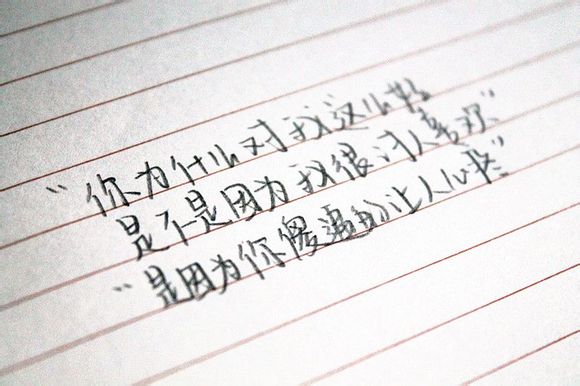 “你为什么对我这么好
是不是因为我很讨人喜欢”
“是因为你傻逼的让人心疼”